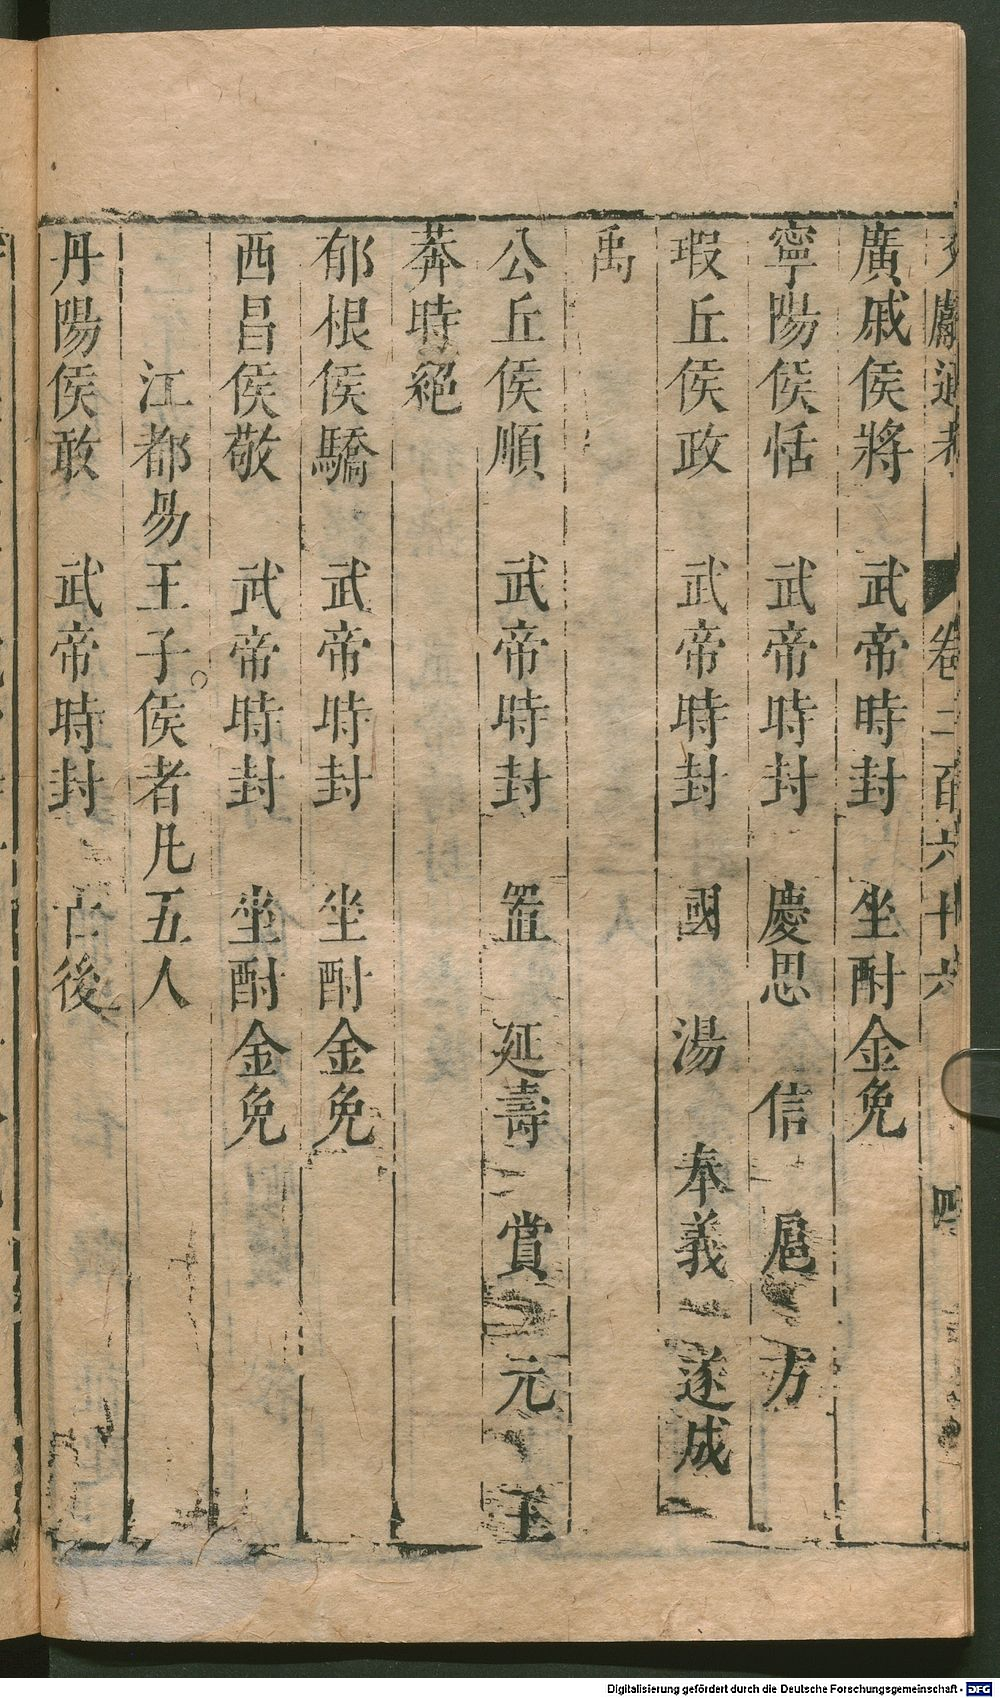 文獻通考 卷二百六十六 四
廣戚侯將 武帝時封 坐酎金免
寧陽侯恬 武帝時封 慶思 信 扈 方
瑕丘侯政 武帝時封 國 湯 奉義 遂成
禹
公丘侯順 武帝時封 置 延壽 賞 元 王
莽時絕
郁根侯驕 武帝時封 坐酎金免
西昌侯敬 武帝時封 坐酎金免
江都易王子侯者凡五人
丹陽侯敢 武帝時封 亡後
Digitalisierung gefördert durch die Deutsche Forschungsgemeinschaft - DFG